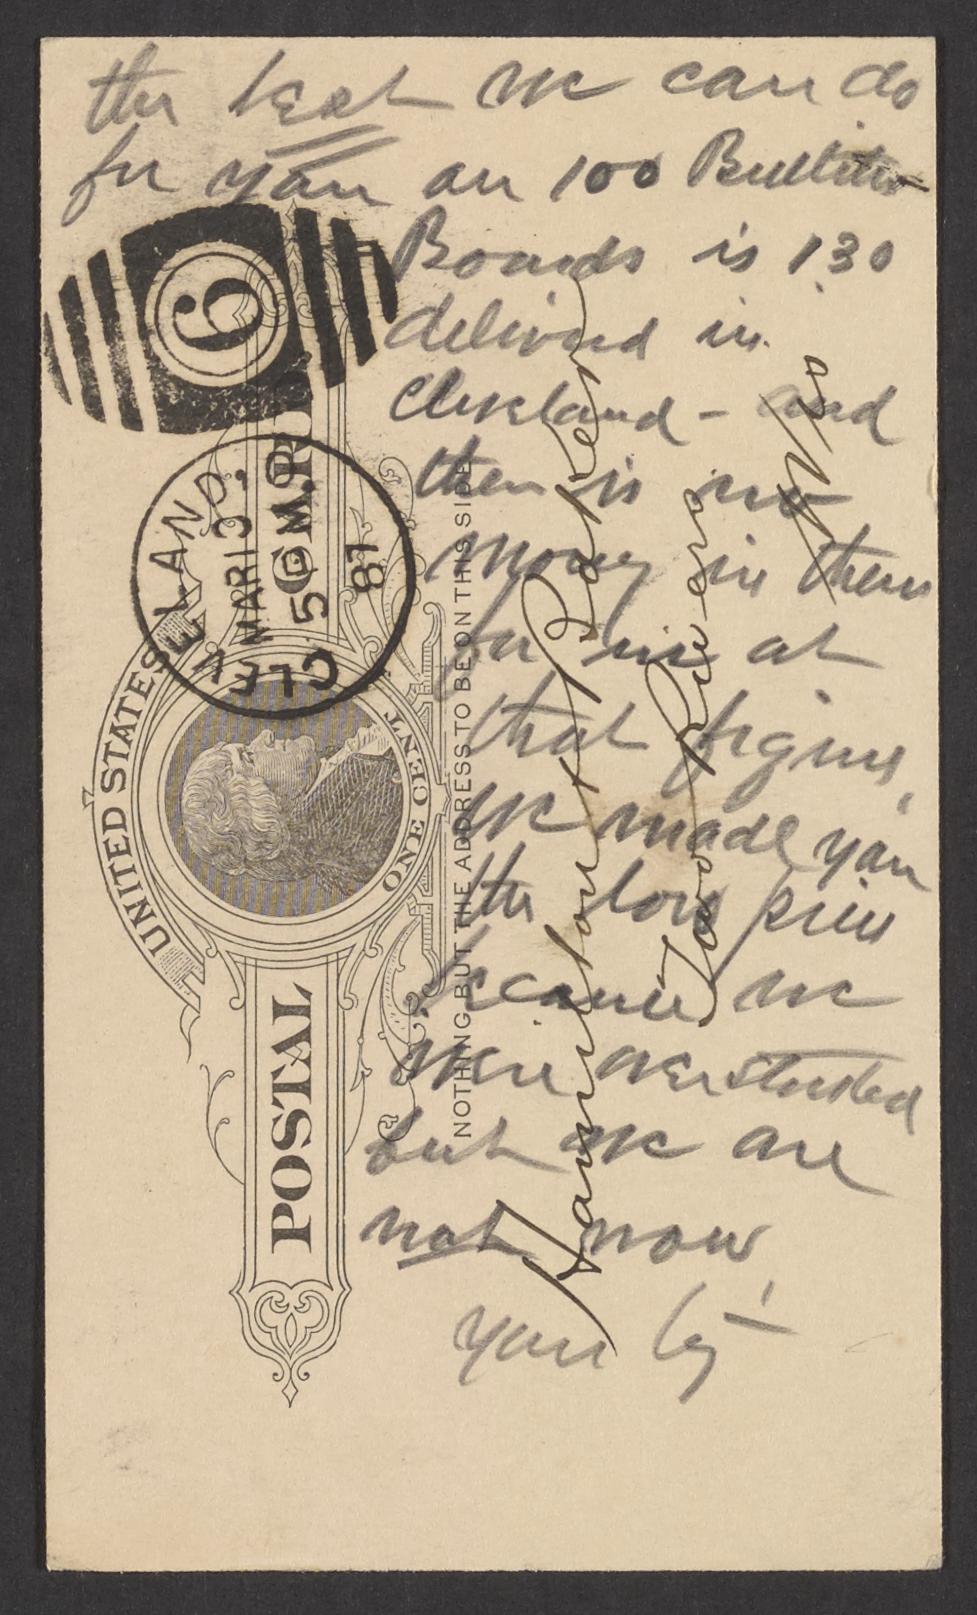 the best we can do
for you on 100 Bulletin
Boards is 130
delivered in
Cleveland - and
there is no
money in them
for us at
that figure,
we made you
the low price
because we
were overstocked
but we are
not now
your ly
Hamilton & Baker
Two Rivers
Wis
POSTAL CARD
UNITED STATES
ONE CENT
NOTHING BUT THE ADDRESS TO BE ON THIS SIDE
CLEVELAND, O.
MAR 13
5 PM
87
6